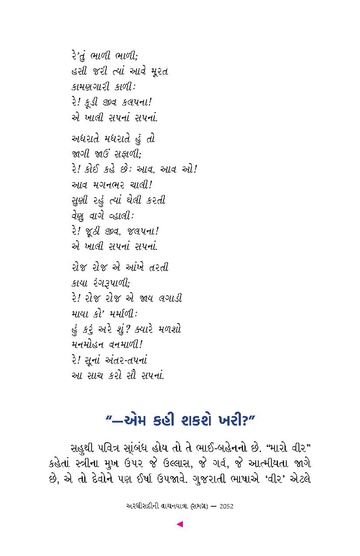 રે'તું ભાળી ભાળી;
હસી જરી ત્યાં આવે મૂરત
કામણગારી કાળી:
રે! કૂડી જીવ કલપના!
એ ખાલી સપનાં સપનાં.
અધરાતે મધરાતે હું તો
જાગી જાઉં સફાળી;
રે! કોઈ કહે છે: આવ, આવ ઓ!
આવ મગનભર ચાલી!
સુણી રહું ત્યાં ઘેલી કરતી
વેણુ વાગે વ્હાલી:
રે! જૂઠી જીવ, જલપના!
એ ખાલી સપનાં સપનાં.
રોજ રોજ એ આંખે તરતી
કાયા રંગરૂપાળી;
રે! રોજ રોજ એ જાય લગાડી
માયા કો' મર્માળી:
હું કરું અરે શું? ક્યારે મળશો
મનમોહન વનમાળી!
રે! સૂનાં અંતર-તપનાં
આ સાચ કરો સૌ સપનાં.
“—એમ કહી શકશે ખરી?”
સહુથી પવિત્ર સાંબંધ હોય તો તે ભાઈ-બહેનનો છે. “મારો વીર”
કહેતાં સ્ત્રીના મુખ ઉપર જે ઉલ્લાસ, જે ગર્વ, જે આત્મીયતા જાગે
છે, એ તો દેવોને પણ ઈર્ષા ઉપજાવે. ગુજરાતી ભાષાએ ‘વીર’ એટલે
અરધીસદીની વાચનયાત્રા (સમગ્ર) — 2052